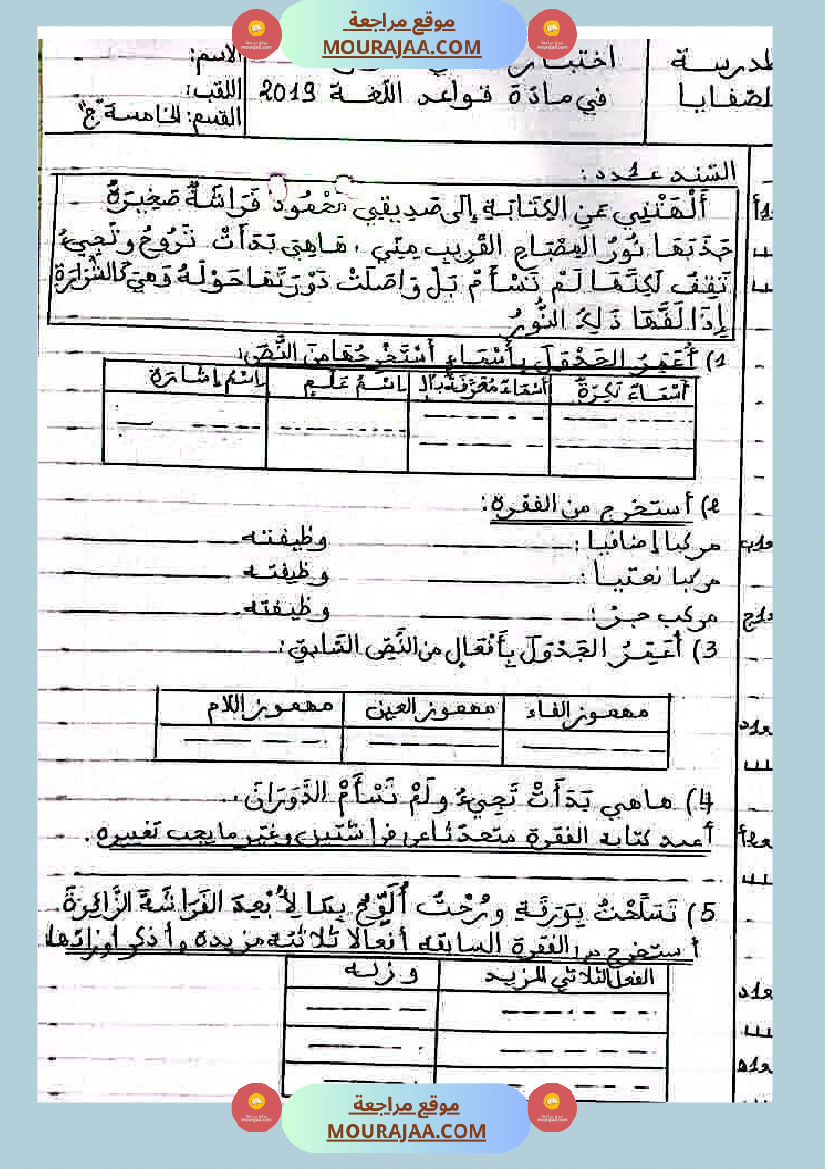 موقع مراجعة
MOURAJAA.COM
المدرسة
الصفايا
اختبار
في مادة قواعد اللغة 2019
الاسم:
اللقب:
القسم: الخامسة "ج"
السّند عدد:
أَلْهَتْنِي عَنِ الكِتَابَةِ إِلَى صَدِيقِي مَحْمُود فَرَاشَةٌ صَغِيرَةٌ
جَذَبَهَا نُورُ المِصْبَاحِ القَرِيبِ مِنِّي، هَاهِيَ بَدَأَتْ تَرُوحُ وَتَجِيءُ
تَقِفُ لَكِنَّهَا لَمْ تَسْأَمْ بَلْ وَاصَلَتْ دَوْرَتَهَا حَوْلَهُ وَهِيَ كَالشَّرَارَةِ
إِذَا لَفَّهَا ذَلِكَ النُّورُ
1) أُعَمِّرُ الجَدْوَلَ بِأَسْمَاءٍ أَسْتَخْرِجُهَا مِنَ النَّصِّ:
أَسْمَاءٌ نَكِرَةٌ
أَسْمَاءٌ مُعَرَّفَةٌ بِال
اِسْمُ عَلَمٍ
اِسْمُ إِشَارَةٍ
2) أستخرج من الفقرة:
مركبا إضافيا: وظيفته
مركبا نعتيا: وظيفته
مركب جر: وظيفته
3) أُعَمِّرُ الجَدْوَلَ بِأَفْعَالٍ مِنَ النَّصِّ السَّابِقِ:
مهموز الفاء
مهموز العين
مهموز اللام
4) هاهي بَدَأَتْ تَجِيءُ ولَمْ تَسْأَمْ الدَّوَرَانَ.
أعيد كتابة الفقرة متحدثا عن فراشتين وغيّر ما يجب تغييره.
5) تَسَلَّحْتُ بِوَرَقَةٍ ورُحْتُ أُلَوِّحُ بِهَا لِأُبْعِدَ الفَرَاشَةَ الزَّائِرَةَ
أستخرج من الفقرة السابقة أفعالا ثلاثية مزيدة وأذكر أوزانها
الفعل الثلاثي المزيد
وزنه
موقع مراجعة
MOURAJAA.COM